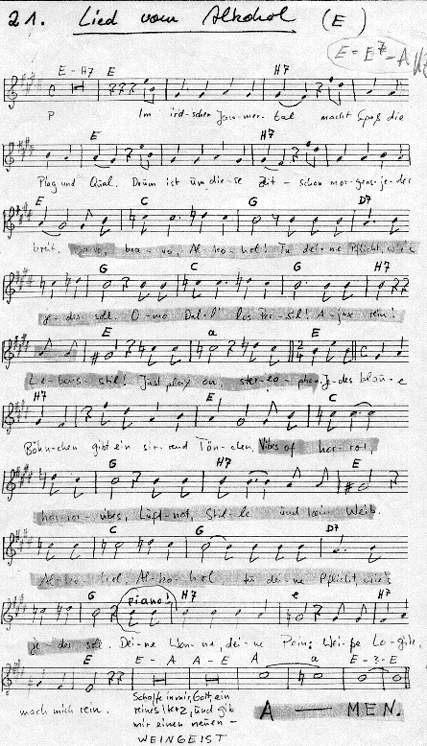 21. Lied vom Alkohol (E)
E = E7 - A H7
E - H7 E H7
P Im irdi-schen Jam-mer-tal macht Spaß die
E H7
Plag und Qual. Drum ist um die-se Zeit - schon mor-gens je-der
E C G D7
breit. Bravo, bra - vo, Al-ko-hol! Tu dei-ne Pflicht, wie's
G C G H7
je-der soll. O-mo Pril! A-jax rein!
E a E
Le-bens-stil! Just play on, ster-eo-phon. Je-des blau-e
H7 E C
Böhn-chen gibt ein sir-rend Tön-chen, Vibes of hor-ror,
G H7 E
hor-ror-vibes, Luft-not, Stil-le und kein Weib.
C G D7
Al-ko-hol, Al-ko-hol tu dei-ne Pflicht, wie's
G piano! H7 e H7
je-der soll. Dei-ne Won-ne, dei-ne Pein: Wei-ße Lo-gik,
E E - A A - E A a E - ? - E
mach mich rein. Schaffe in mir, Gott, ein reines Herz, und gib mir einen neuen - WEINGEIST
A — MEN.